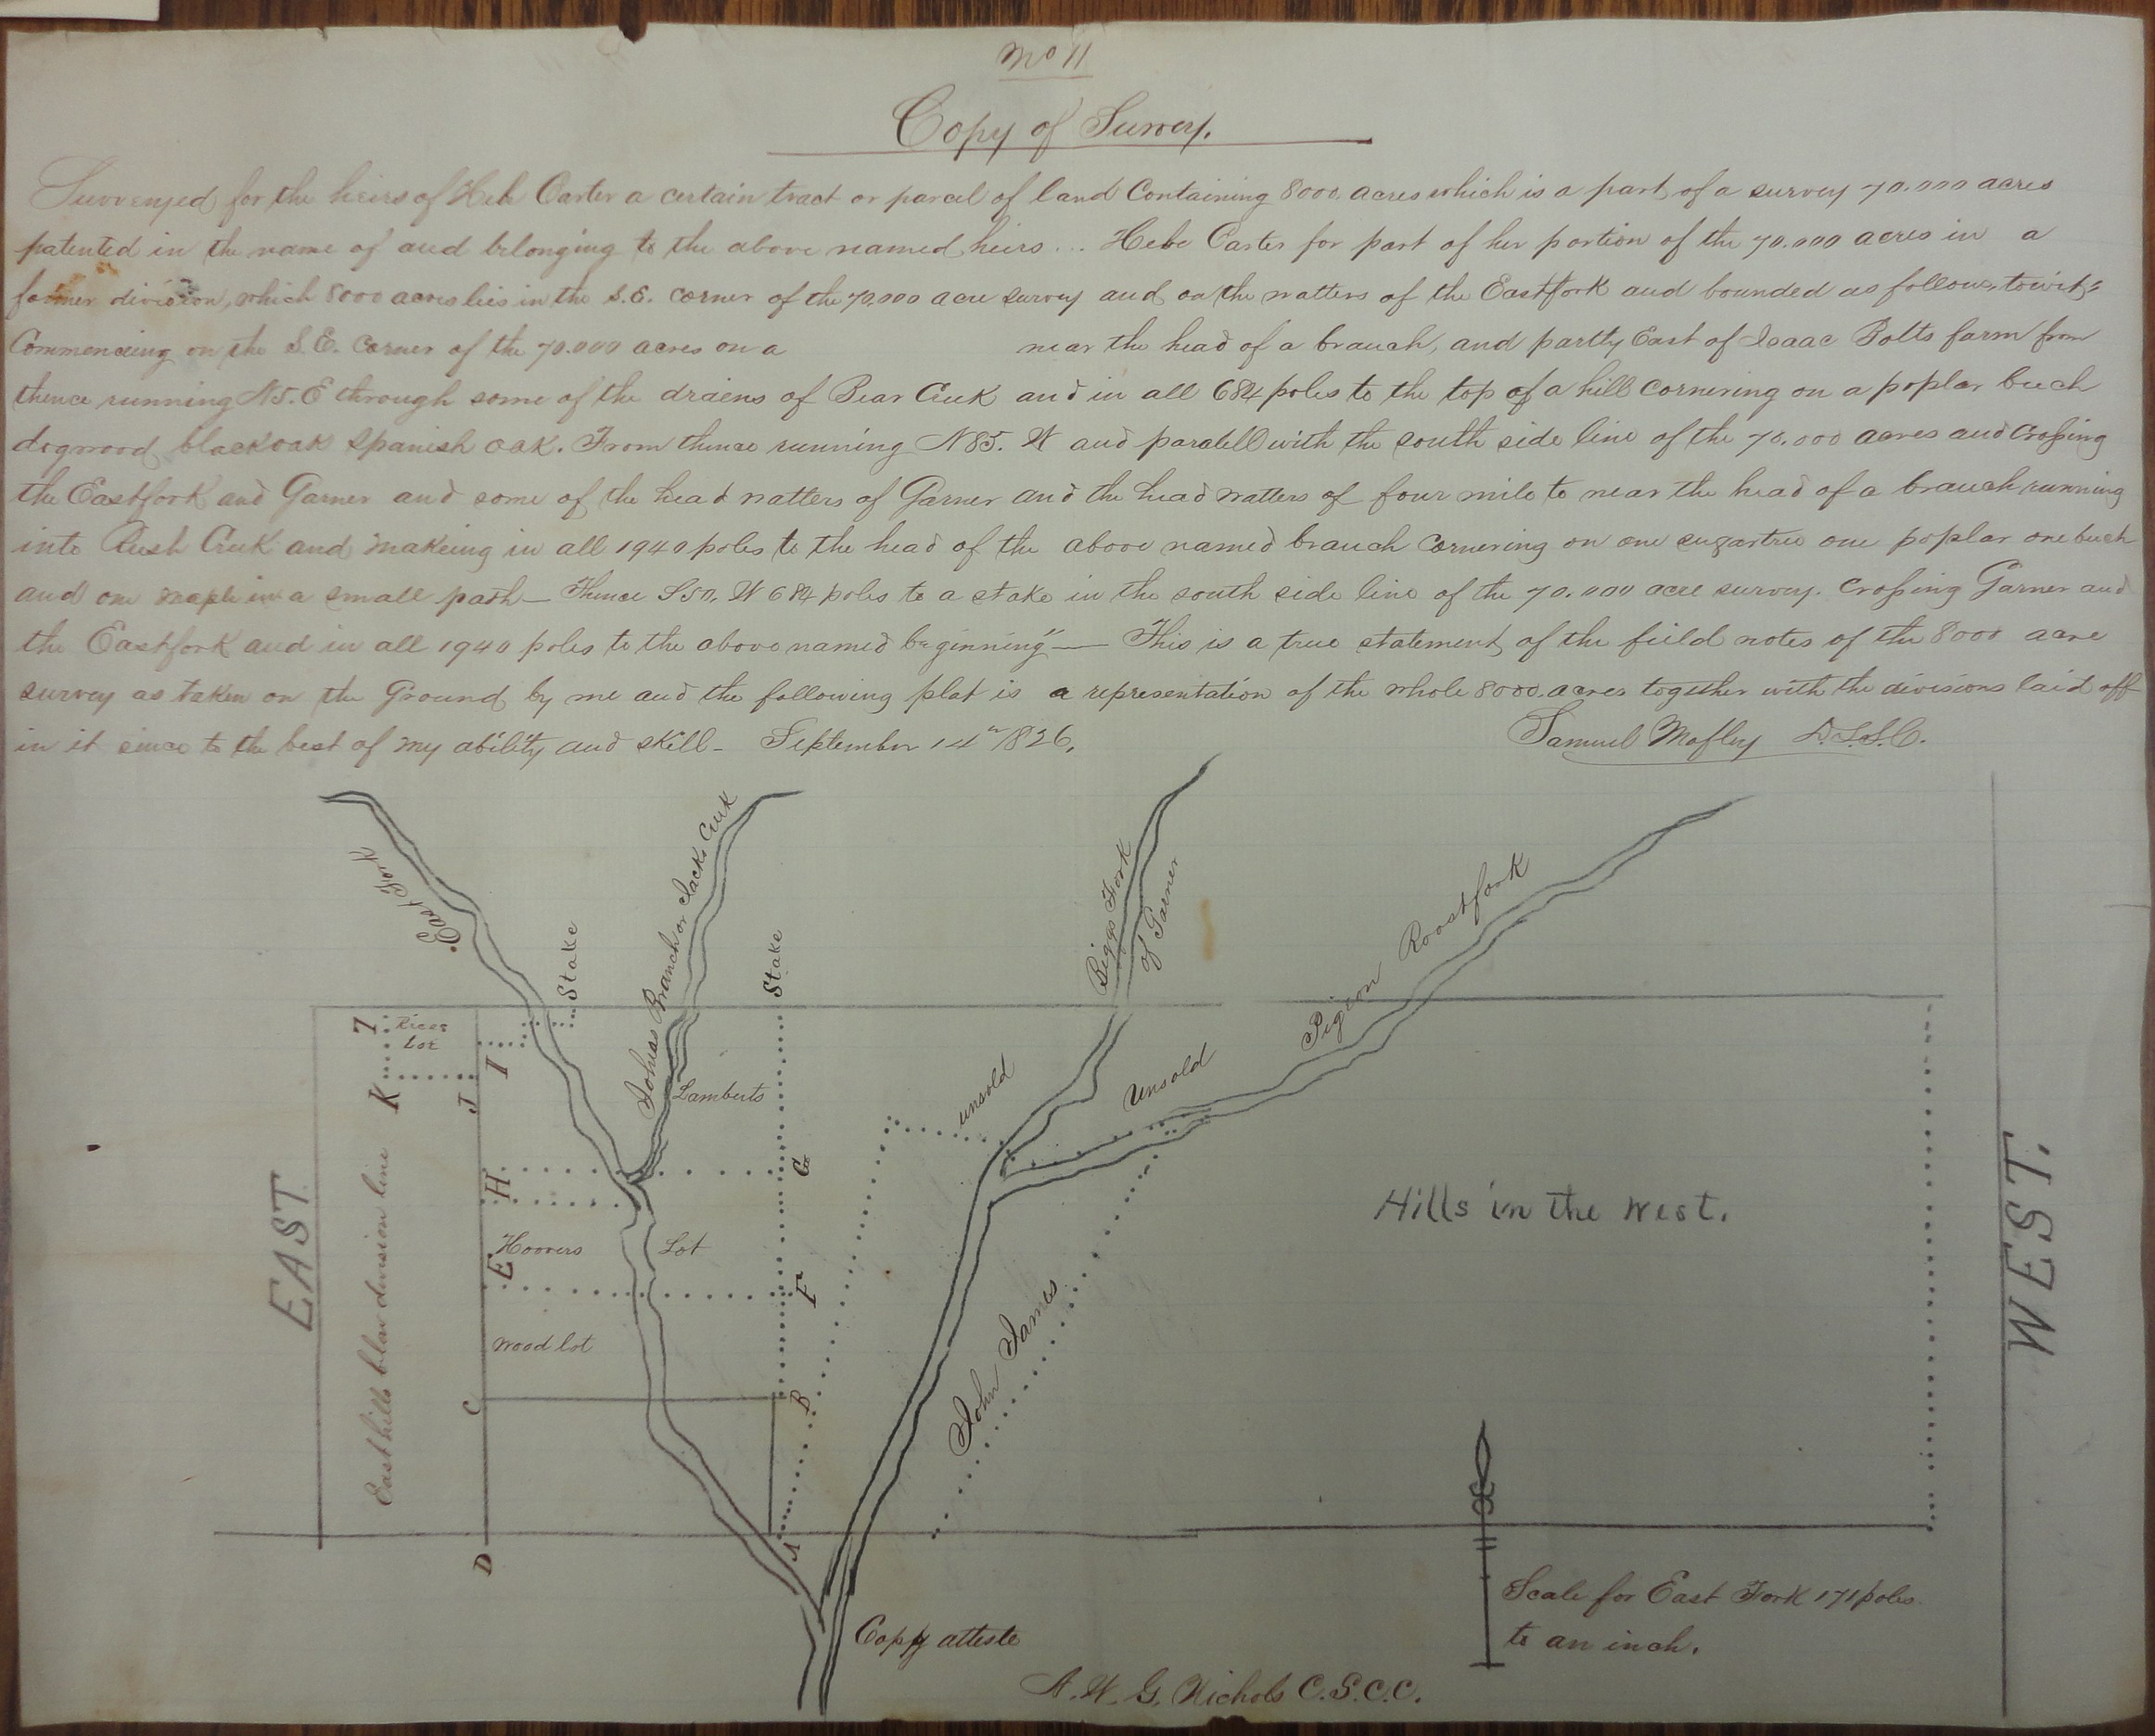 No 11
Copy of Survey.
Surveyed for the heirs of Hebe Carter a certain tract or parcel of land Containing 8000 acres which is a part of a survey 70.000 acres
patented in the name of and belonging to the above named heirs ... Hebe Carter for part of her portion of the 70.000 acres in a
former division, which 8000 acres lies in the S.E. corner of the 70,000 acre survey and on the watters of the Eastfork and bounded as follows, towit;
Commencing on the S.E. Corner of the 70.000 acres on a near the head of a branch, and partly East of Isaac Bolts farm from
thence running N5.E through some of the drains of Bear Creek and in all 684 poles to the top of a hill cornering on a poplar beech
dogwood blackoak Spanish oak. From thence running N85. W and paralell with the south side line of the 70.000 acres and Crossing
the Eastfork and Garner and some of the head watters of Garner and the head watters of four mile to near the head of a branch running
into Rush Creek and makeing in all 1940 poles to the head of the above named branch Cornering on one sugartree one poplar one beech
and one maple in a small path — Thence S5. W 684 poles to a stake in the south side line of the 70.000 acre survey. Crossing Garner and
the Eastfork and in all 1940 poles to the above named beginning" — This is a true statement of the field notes of the 8000 acre
survey as taken on the Ground by me and the following plat is a representation of the whole 8000 acres together with the divisions laid off
in it since to the best of my ability and skill - September 14th 1826,
Samuel D.S.S.C.
East Fork
Stake
Johns Branch or Jacks Creek
Stake
Biggs Fork
of Garner
Pigeon Roostfork
7
Rices
Lot
I
K
J
Lamberts
unsold
Unsold
H
G
EAST
East hills blar division line
Hoovers Lot
E
F
Wood lot
Hills in the West.
WEST.
John James
C
B
D
A
Scale for East Fork 171 poles
to an inch.
Copy atteste
A. W. G. Nichols C.S.C.C.